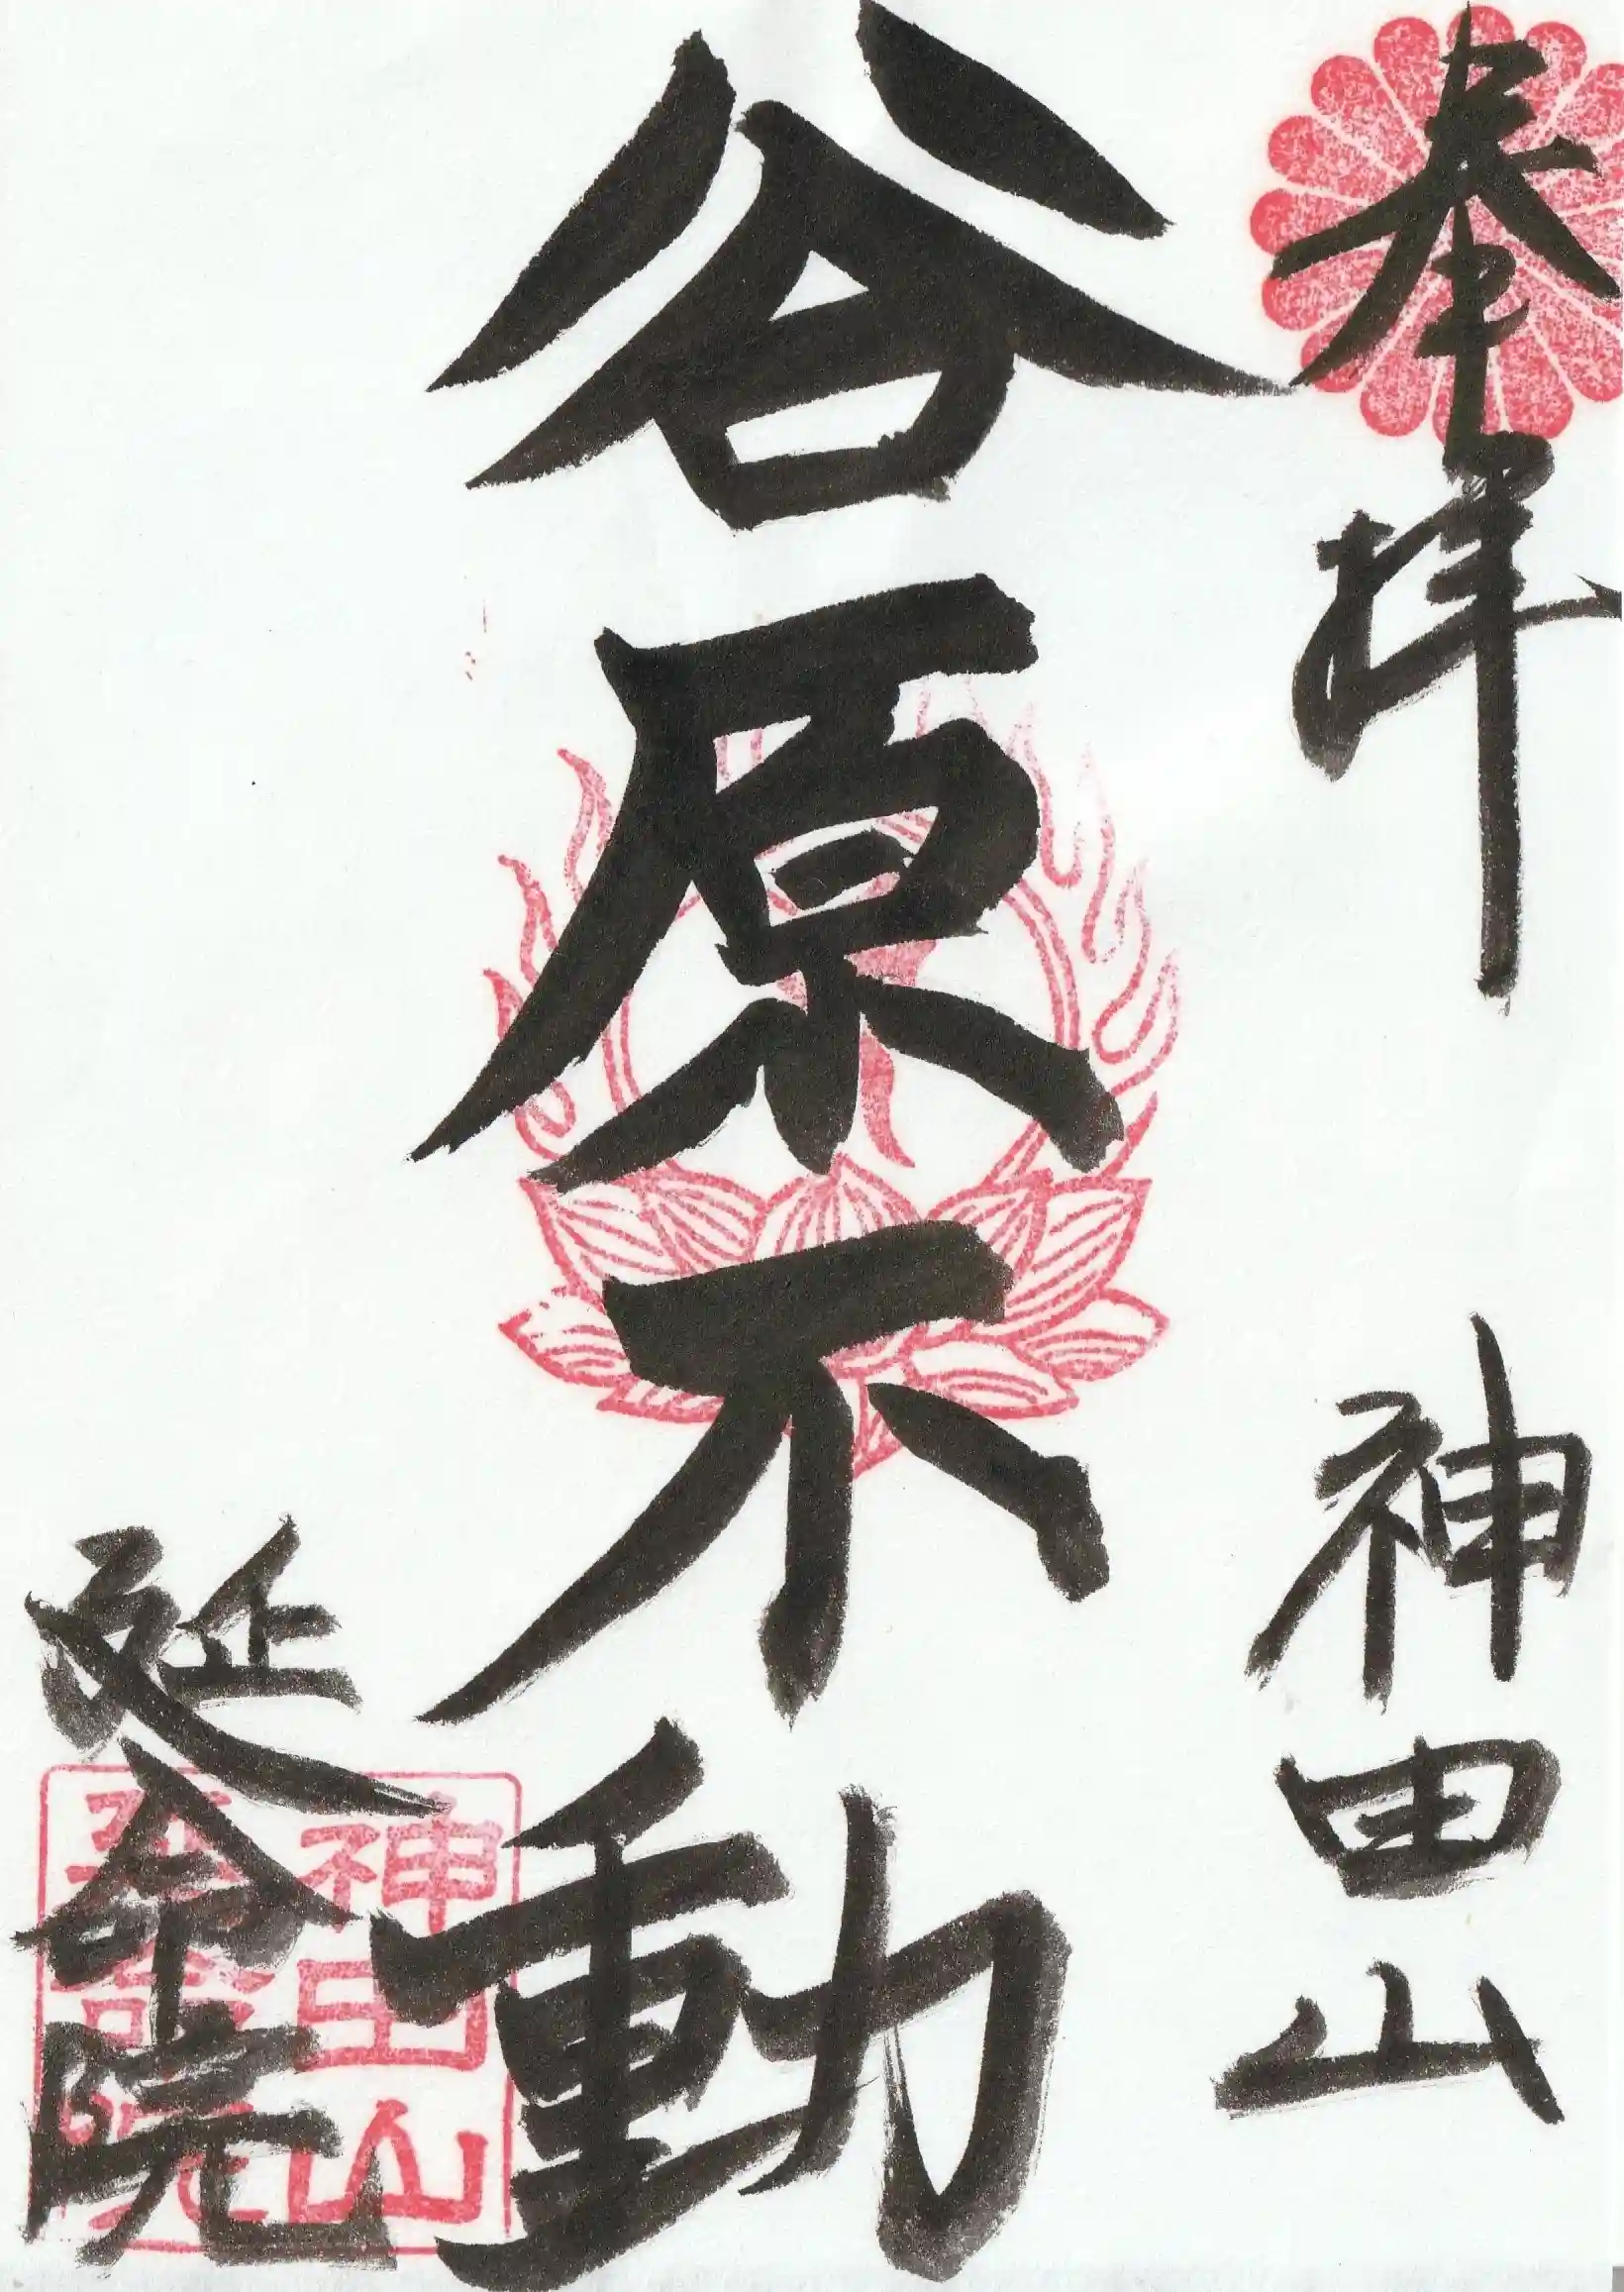 奉拝 神田山
谷原不動
延命院
神田山
延命院